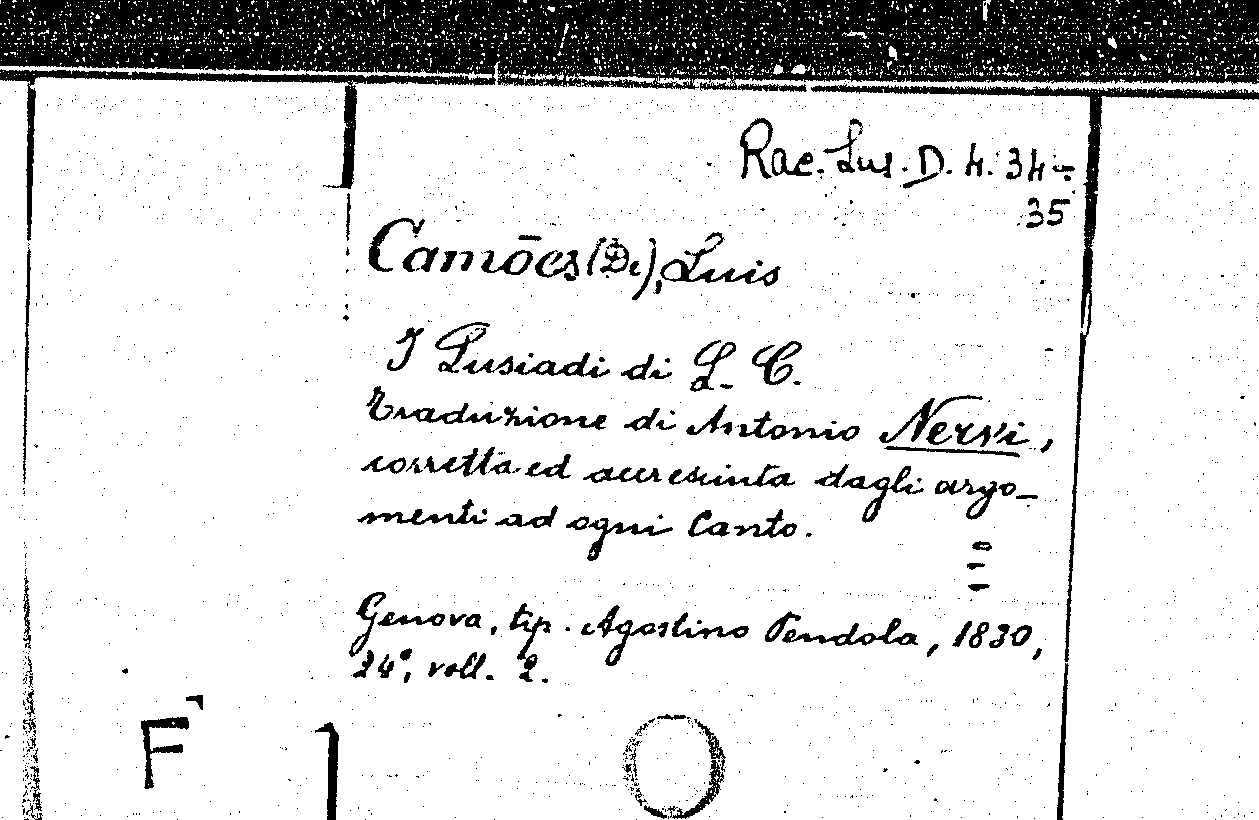 Rac. Lus. D. 4. 34-
35
Camōes (De), Luis
I Lusiadi di L. C.
Traduzione di Antonio Nervi,
corretta ed accresciuta dagli argo-
menti ad ogni Canto.
Genova, tip. Agostino Pendola, 1830,
24°, voll. 2.
F